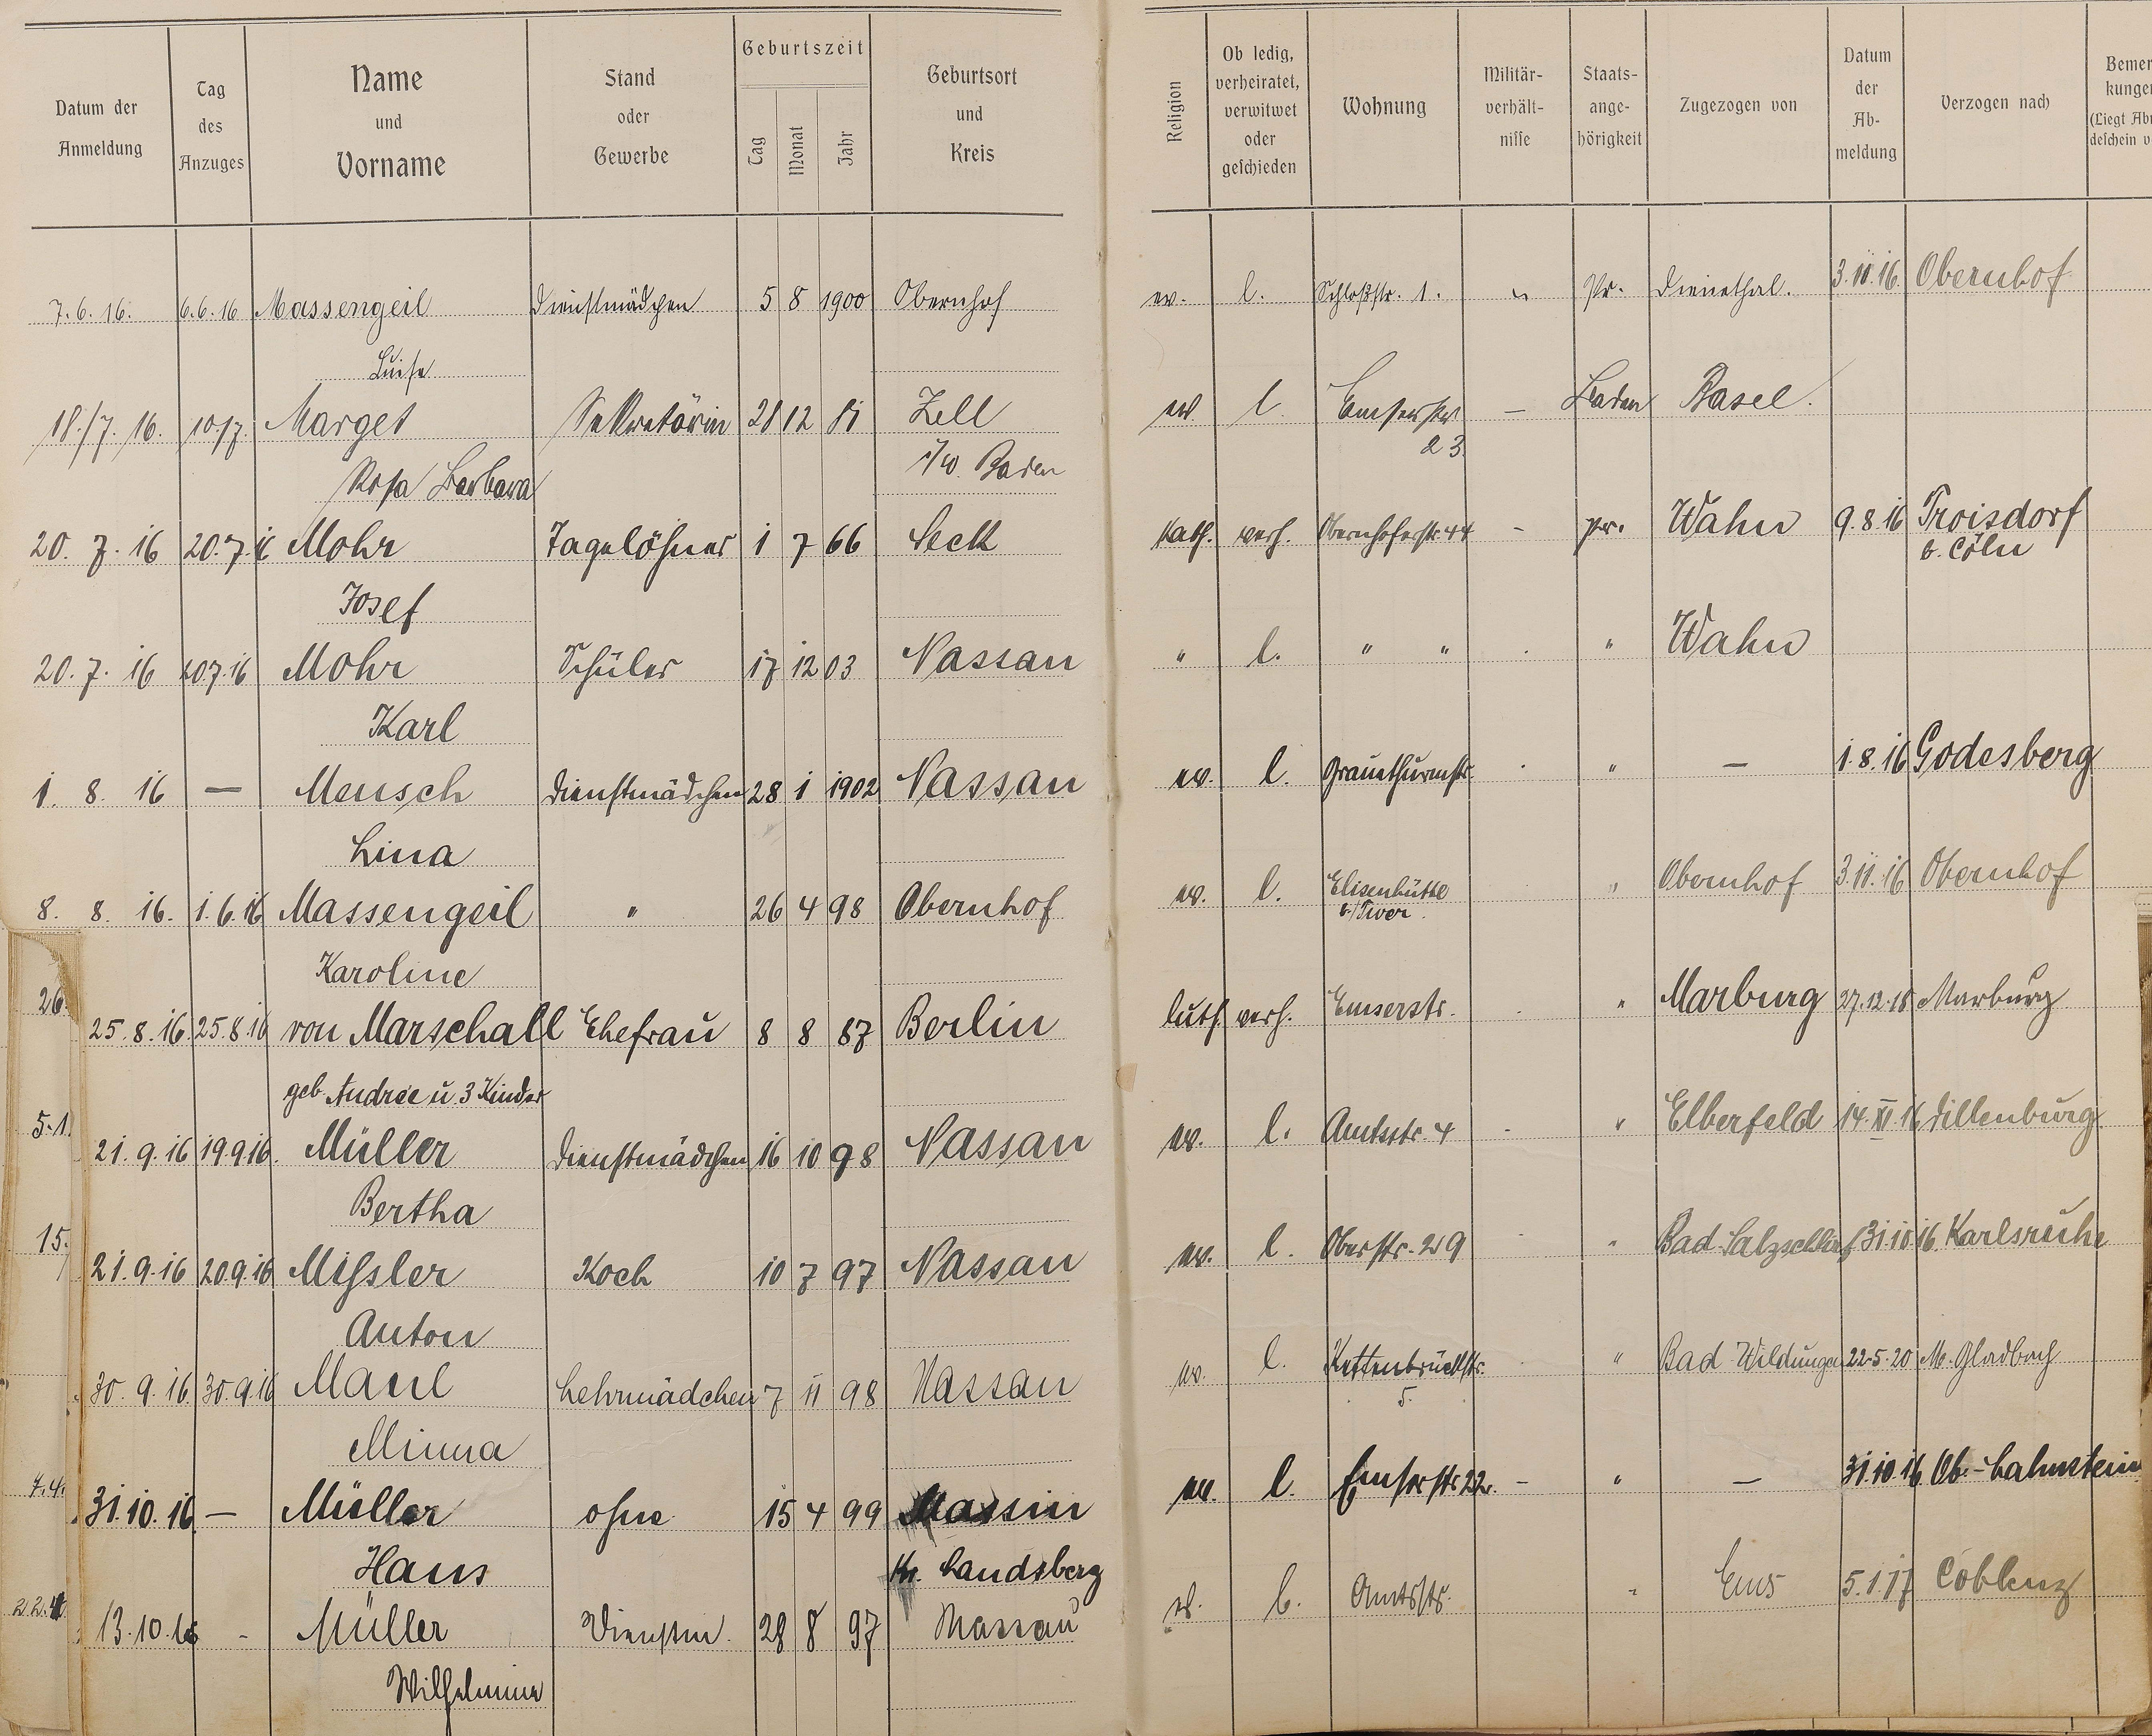 Datum der Anmeldung | Tag des Anzuges | Name und Vorname | Stand oder Gewerbe | Geburtszeit Tag Monat Jahr | Geburtsort und Kreis | Religion | Ob ledig, verheiratet, verwitwet oder geschieden | Wohnung | Militär-verhält-nisse | Staats-ange-hörigkeit | Zugezogen von | Datum der Ab-meldung | Verzogen nach | Bemer kungen (Liegt Ab deschein v
7.6.16. 6.6.16 Massengeil Dienstmädchen 5 8 1900 Obernhof ev. l. Schloßstr. 1. " Pr. Dienethal. 3.11.16. Obernhof
Luise
18./7. 16. 10/7. Marget Sekretärin 28 12 Zell ev. l. Emserstr — Baden Basel.
Rosa Barbara i/W. Baden 23.
20. 7. 16 20.7.16 Mohr Tagelöhner 1 7 66 Seck kath. verh. Obernhoferstr. 44 - pr. Wahn 9.8.16 Troisdorf
Josef b. Cöln
20. 7. 16 20.7.16 Mohr Schüler 17 12 03 Nassau " l. " " . " Wahn
Karl
1. 8. 16 — Mensch Dienstmädchen 28 1 1902 Nassau ev. l. Grauethurmstr. . " — 1.8.16 Godesberg
Lina
8. 8. 16. 1.6.16 Massengeil " 26 4 98 Obernhof ev. l. Elisenhütte " Obernhof 3.11.16 Obernhof
Karoline
26.
25.8.16. 25.8.16 von Marschall Ehefrau 8 8 87 Berlin luth. verh. Emserstr. . " Marburg 27.12.18 Marburg
geb. Andrée u. 3 Kinder
5.1.
21.9.16 19.9.16. Müller Dienstmädchen 16 10 98 Nassau ev. l. Amtsstr. 4 . " Elberfeld 14.XI.16 Dillenburg.
Bertha
15.
21.9.16 20.9.16 Mißler Koch 10 7 97 Nassau ev. l. Oberstr. 29 " Bad-Salzschlirf 31.10.16. Karlsruhe
Anton
30. 9. 16. 30.9.16 Maul Lehrmädchen 7 11 98 Nassau ev. l. Kettenbrückstr. . " Bad Wildungen 22.5.20 M. Gladbach
Minna 5.
7.4.
31.10.16. — Müller ohne 15 4 99 Massin ev. l. Emserstr 22. — " — 31.10.16 Ob.-Lahnstein
Hans Kr. Landsberg
22.4.
13.10.16 - Müller Dienstm. 28 8 97 Nassau ev. l. Amtsstr. " Ems 5.1.17 Coblenz
Wilhelmine